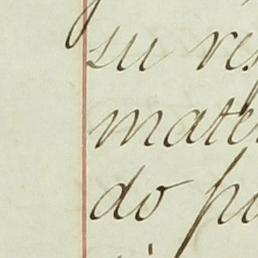 su res
mate
do po